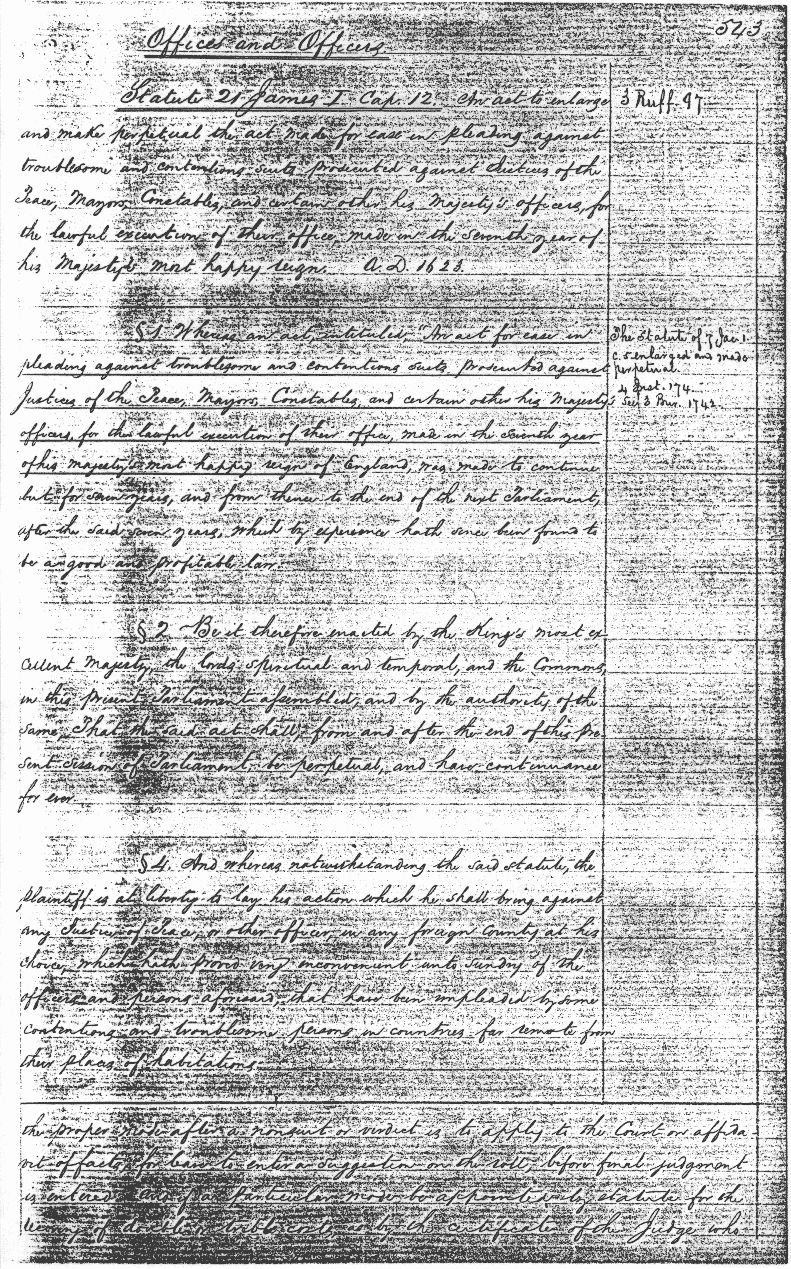 543
Offices and Officers
Statute 21 James I. Cap. 12. An act to enlarge
and make perpetual the act made for ease in pleading against
troublesome and contentious suits prosecuted against Justices of the
Peace, Mayors, Constables, and certain other his Majesty's officers, for
the lawful execution of their office, made in the seventh year of
his Majesty's most happy reign. A.D. 1623.
3 Ruff. 97
§ 1. Whereas an act, intituled, "An act for ease in
pleading against troublesome and contentious suits prosecuted against
Justices of the Peace, Mayors, Constables, and certain other his Majesty's
officers, for the lawful execution of their office, made in the seventh year
of his majesty's most happy reign of England, was made to continue
but for seven years, and from thence to the end of the next Parliament,
after the said seven years, which by experience hath since been found to
be a good and profitable law:
The Statute of 7 Jac. 1
c. 5 enlarged and made
perpetual.
4 Inst. 174
See 3 Bur. 1742.
§ 2. Be it therefore enacted by the King's most ex-
cellent Majesty, the lords spiritual and temporal, and the Commons,
in this present Parliament assembled, and by the authority of the
same, That the said act shall, from and after the end of this pre-
sent session of Parliament, be perpetual, and have continuance
for ever.
§ 4. And whereas notwithstanding the said statute, the
plaintiff is at liberty to lay his action which he shall bring against
any Justice of Peace, or other officer, in any foreign County at his
choice, which hath proved very inconvenient unto sundry of the
officers and persons aforesaid, that have been impleaded by some
contentious and troublesome persons in countries far remote from
their places of habitations
the proper mode after a nonsuit or verdict is to apply to the Court on affida-
vit of facts, for leave to enter a suggestion on the roll, before final judgment
is entered. And if a particular mode be appointed by statute for the
of double or treble costs, as by the certificate of the Judge who